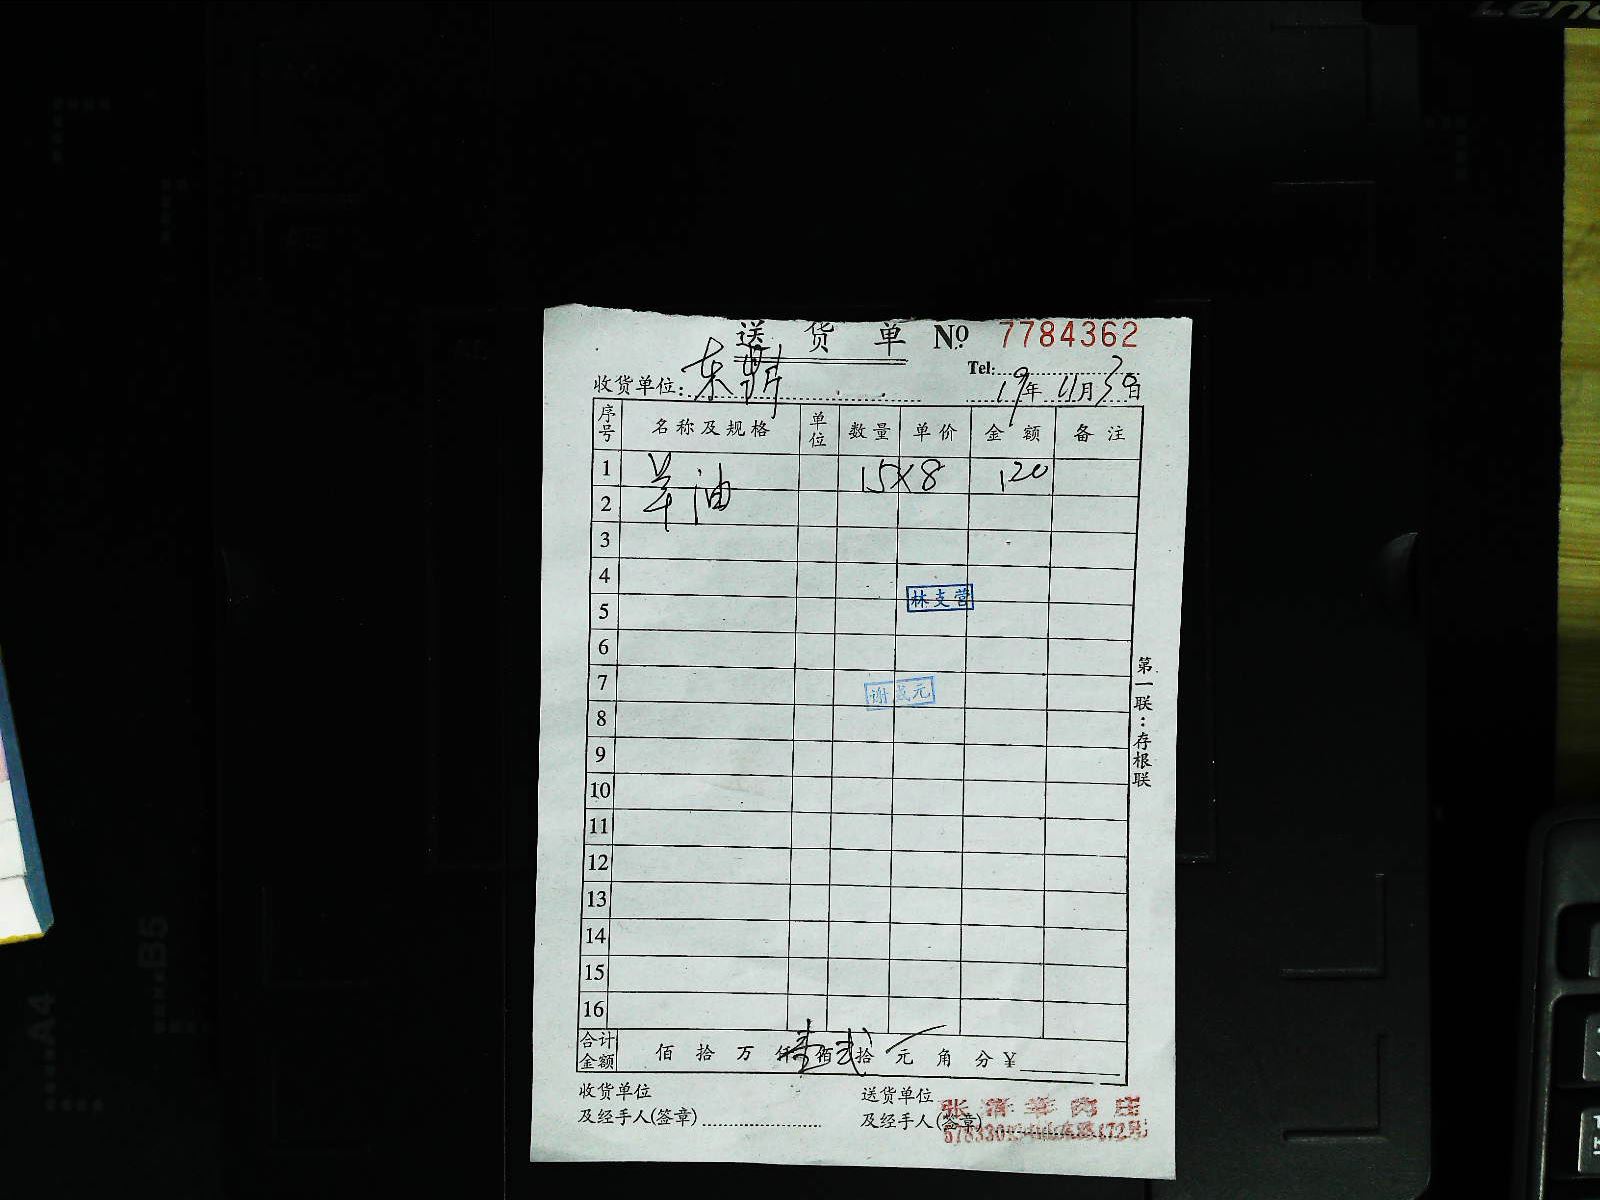 Leno
送货单 No 7784362
Tel:
收货单位: 东
19年 11月 30日
序号 名称及规格 单位 数量 单价 金额 备注
1 羊油 15×8 120
2
3
4
林支营
5
6
7
谢成元
8
9
10
11
12
13
14
15
16
第一联:存根联
合计金额 佰 拾 万 仟 壹佰 贰拾 元 角 分 ¥
收货单位
及经手人(签章)
送货单位
及经手人(签章)
张清羊肉庄
B5
A4